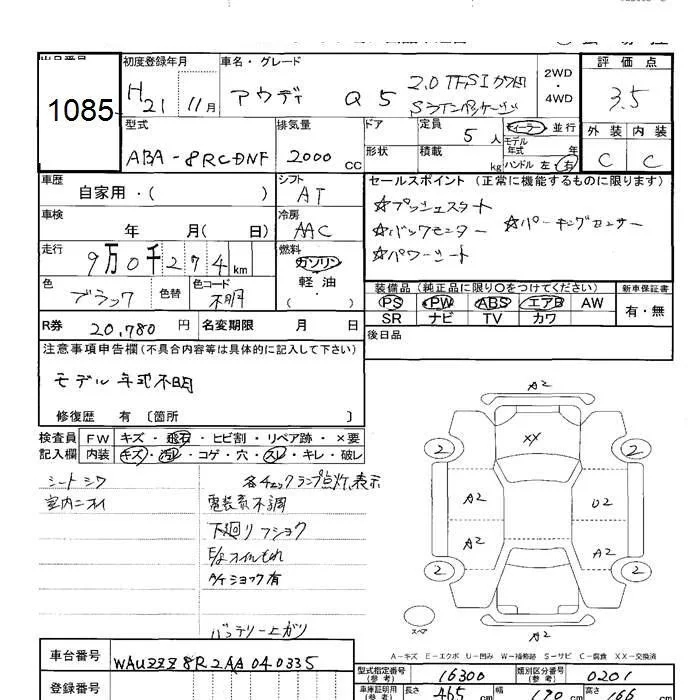 1085
初度登録年月 車名・グレード 評価点
H21 11月 アウディ Q5 2.0 TFSI クワトロ Sラインパッケージ 2WD ・ 4WD 3.5
型式 排気量 ドア 定員 5人 ディーラー・並行 外装 内装
ABA-8RCDNF 2000cc 形状 積載 kg モデル年式 年 ハンドル 左・右 C C
車歴 自家用・( ) シフト AT セールスポイント (正常に機能するものに限ります)
車検 年 月( 日) 冷房 AAC ☆プッシュスタート
☆バックモニター ☆パーキングセンサー
走行 9万0千274km 燃料 ガソリン・軽油・( ) ☆パワーシート
色 ブラック 色替 色コード 不明 装備品 (純正品に限り○をつけてください) 新車保証書
PS PW ABS エアB AW 有・無
SR ナビ TV カワ
R券 20,780円 名変期限 月 日 後日品
注意事項申告欄(不具合内容等は具体的に記入して下さい)
モデル年式不明
修復歴 有 〔箇所 〕
検査員 FW キズ・飛石・ヒビ割・リペア跡・×要
記入欄 内装 キズ・汚レ・コゲ・穴・スレ・キレ・破レ
シートシワ 各チェックランプ点灯、表示
室内ニオイ 電装系不調
下廻りフショク
E/gオイルもれ
A/Tショック有
バッテリー上ガリ
A2
XX
2 2
A2 U2
A2 A2
2 2
スペア A2
A−キズ E−エクボ U−凹み W−補修跡 S−サビ C−腐食 XX−交換済
車台番号 WAUZZZ8R2AA040335 型式指定番号(参考) 16300 類別区分番号(参考) 0201
登録番号 車庫証明用(参考) 長さ 465cm 幅 190cm 高さ 166cm